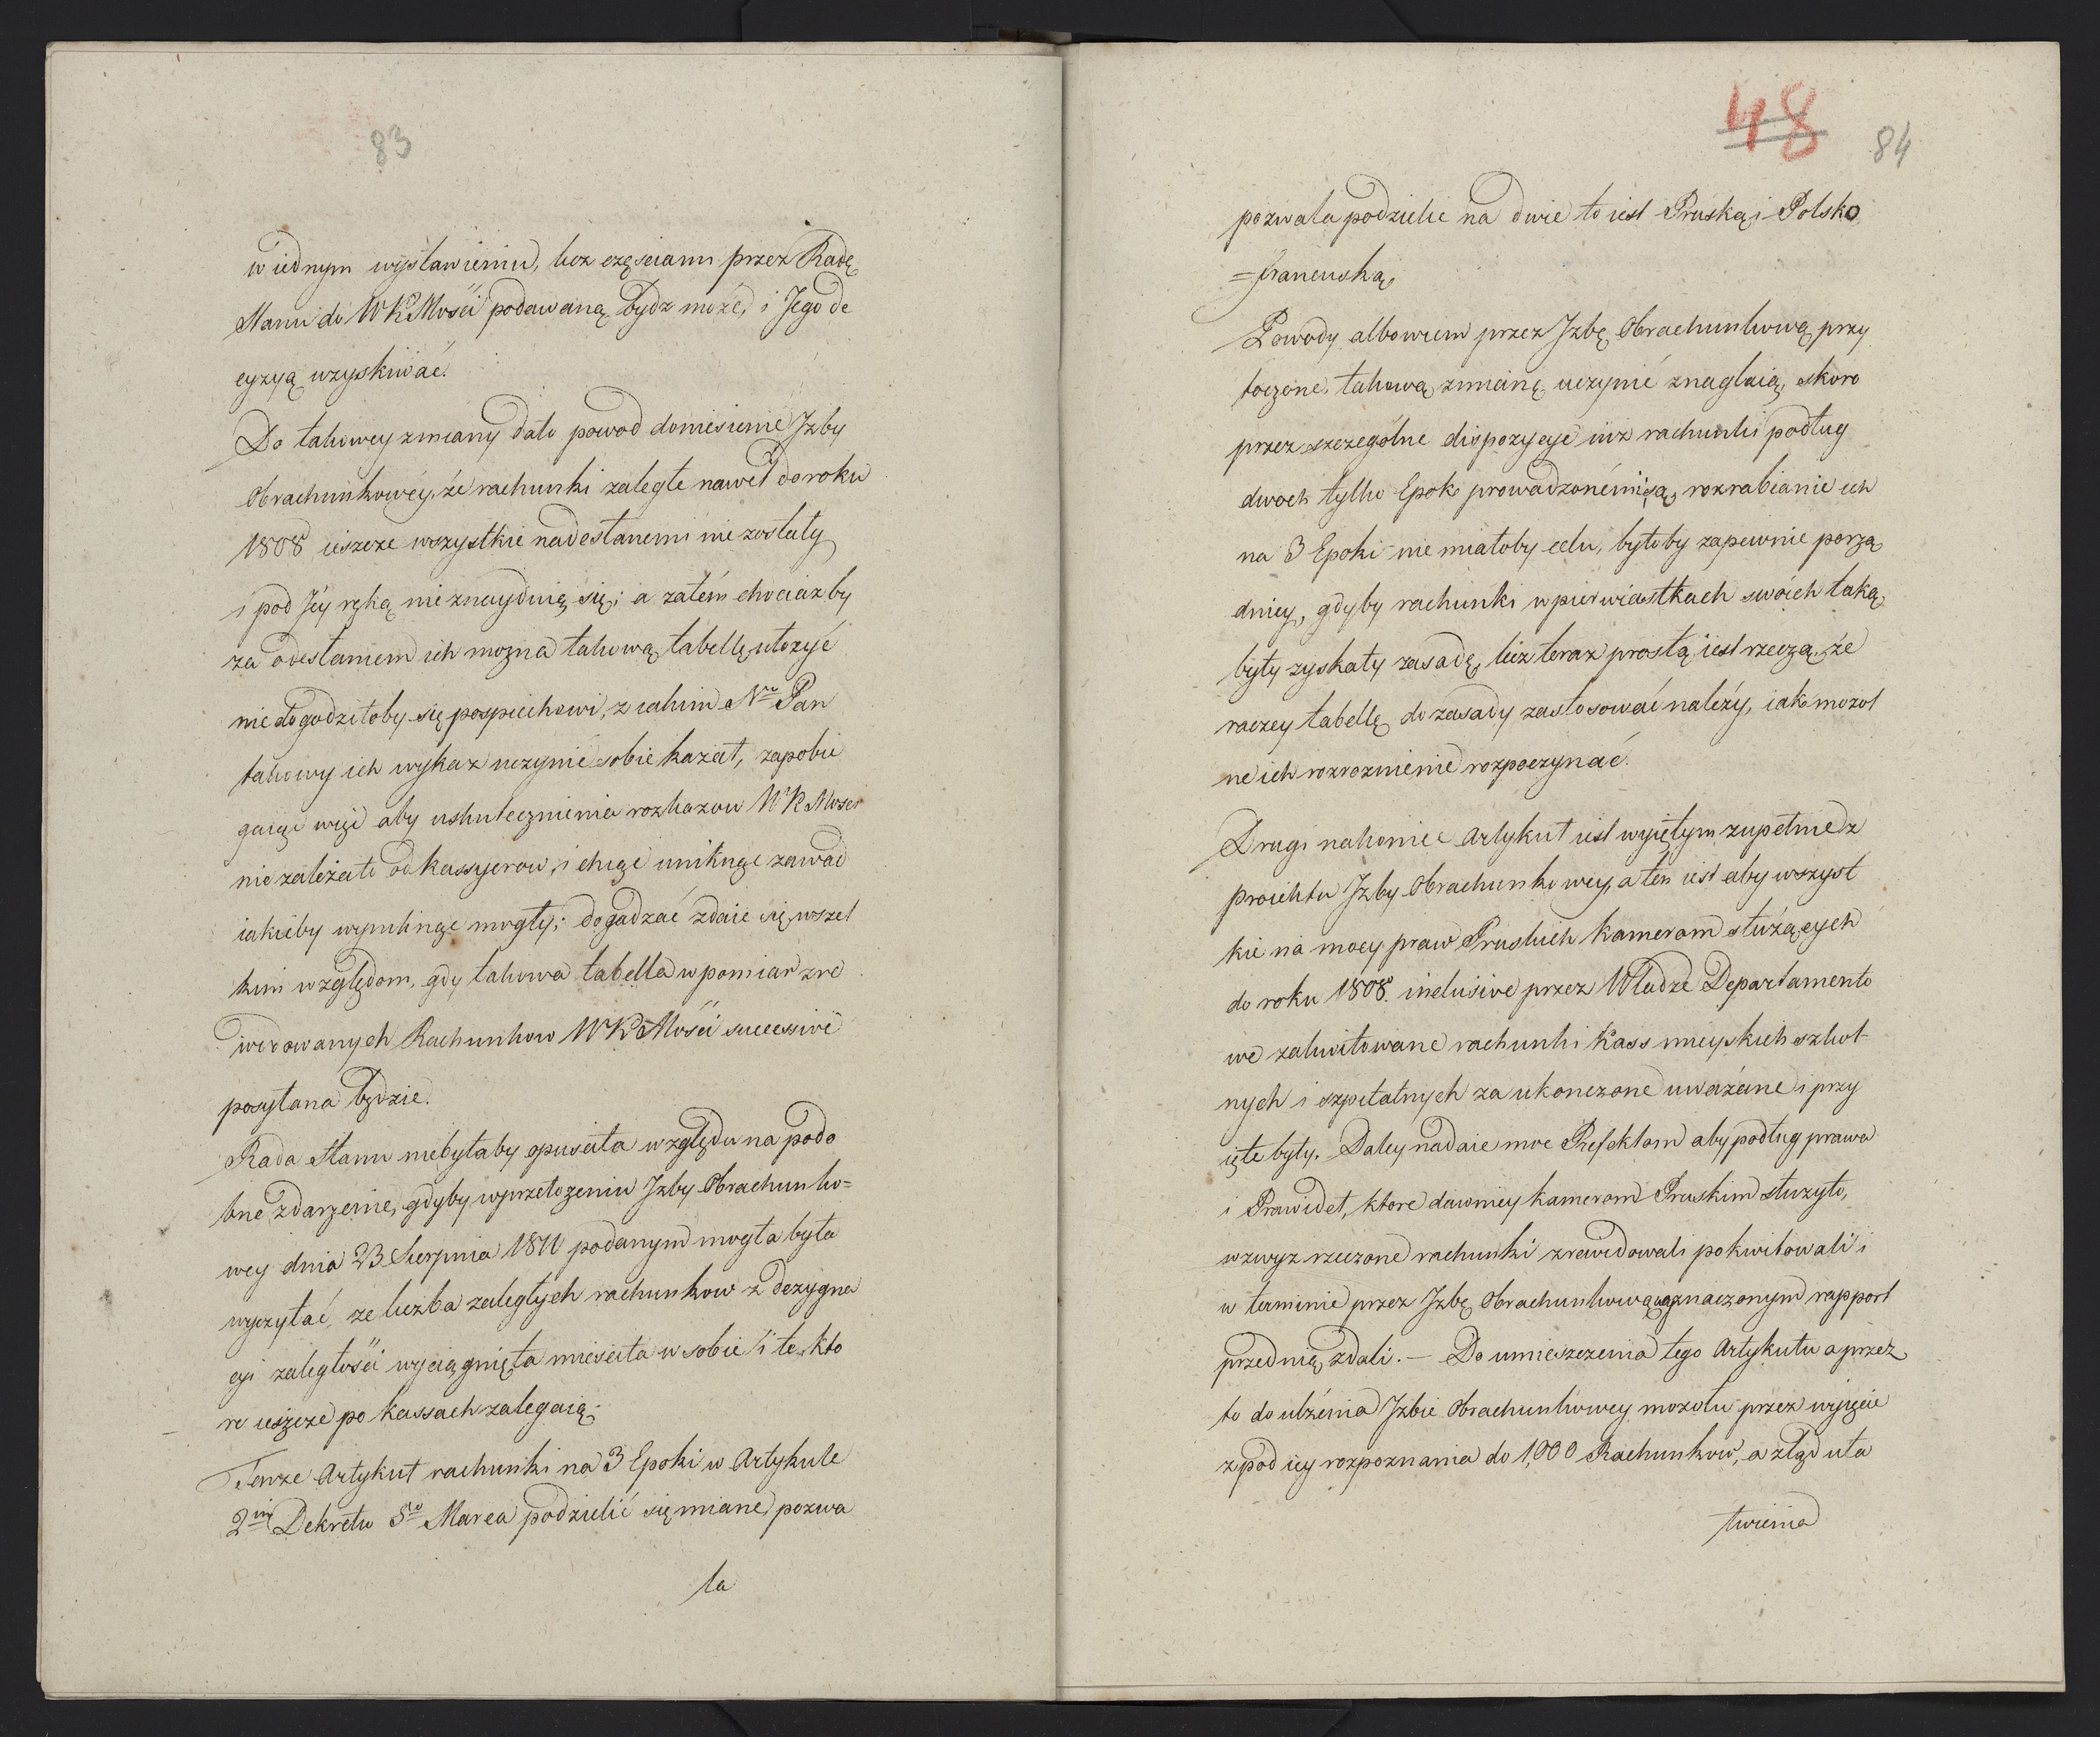 83
w iednym wystawieniu, lecz częsciami przez Radę
Stanu do WKMości podawaną bydz może, i Jego de
cyzyą uzyskiwać.
Do takowey zmiany dało powod doniesienie Jzby
Obrachunkowéy, że rachunki zaległe nawet do roku
1808 ieszcze wszystkie nadesłanemi nie zostały
i pod Jéy ręką nie znayduią się; a zatém chociażby
za odesłaniem ich mozna takową tabellę ułozyć
nie dogodziłoby się pospiechowi, z iakim Nro Pan
takowy ich wykaz uczynić sobie kazał, zapobie
gaiąc więc aby uskutecznienia rozkazow WKMosci
nie zależało od kassyerow, i chcąc uniknąć zawad
iakieby wyniknąc mogły; dogadzać zdaie się wszel
kim względom, gdy takowa tabella w pomiar zre
widowanych Rachunkow WKMości successive
posyłana będzie.
Rada Stanu niebyłaby opusciła względu na podo
bne zdarzenie, gdyby w przełożeniu Jzby Obrachunko=
wey dnia 23 Sierpnia 1811 podanym mogła była
wyczytać, ze liczba zaległych rachunkow z dezygna
cyi zaległości wyciągnięta miesciła w sobie i te kto
re ieszcze po kassach zalegaią.
Tenze Artykuł rachunki na 3 Epoki w Artykule
2im Dekretu 5go Marca podzielić się miane, pozwa
la
48
84
pozwala podzielić na dwie to iest Pruską i Polsko
=francuską,
Powody albowiem przez Jzbę Obrachunkową przy
toczone, takową zmianę uczynić znaglaią, skoro
przez szczególne dispozycye iuż rachunki podług
dwoch tylko Epok prowadzonémi są, rozrabianie ich
na 3 Epoki nie miałoby celu, byłoby zapewnie porzą
dniey, gdyby rachunki w pierwiastkach swoich taką
były zyskały zasadę, lecz teraz prostą iest rzeczą, że
raczey tabellę do zasady zastosować należy, iak mozol
ne ich rozroznienie rozpoczynać.
Drugi nakoniec Artykuł iest wyiętym zupełnie z
proiektu Jzby Obrachunkowey, a ten iest aby wszyst
kie na mocy praw Pruskich Kamerom służących
do roku 1808. inclusive przez Władze Departamento
we zakwitowane rachunki Kass mieyskich szkol-
nych i szpitalnych za ukonczone uważane i przy
ięte były. Daley nadaie moc Prefektom aby podług prawa
i Prawideł, ktore dawniey kamerom Pruskim służyło,
wzwyz rzeczone rachunki zrewidowali pokwitowali i
w terminie przez Jzbę Obrachunkową oznaczonym rapport
przed nią zdali. — Do umieszczenia tego Artykułu a przez
to do ulżenia Jzbie Obrachunkowey mozołu przez wyięcie
z pod iey rozpoznania do 1,000 Rachunkow, a ztąd uła
twienia